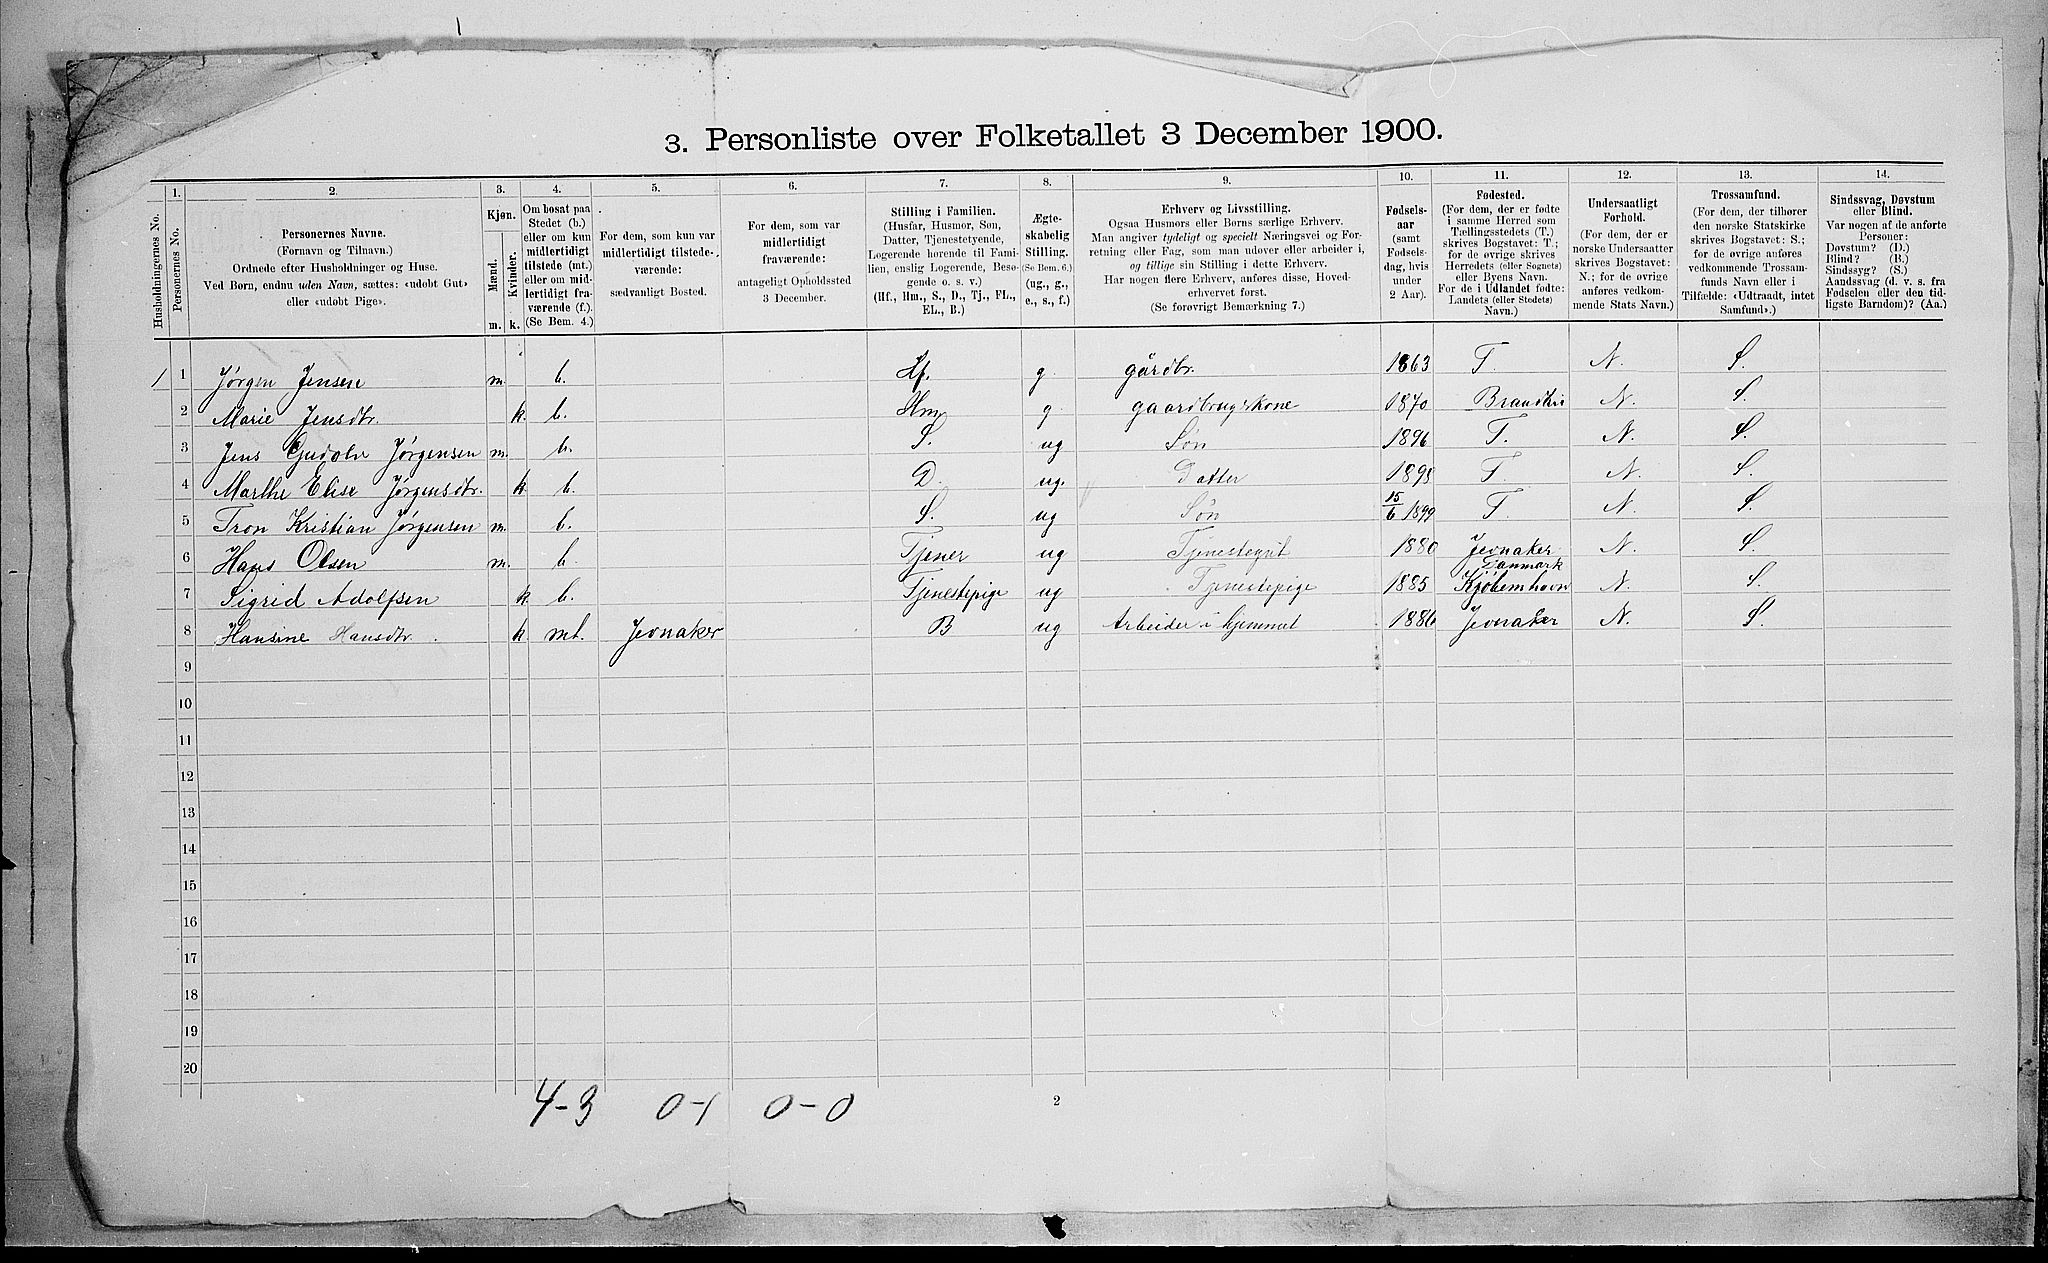 3. Personliste over Folketallet 3 December 1900.
1. 2. 3. 4. 5. 6. 7. 8. 9. 10. 11. 12. 13. 14.
Husholdningernes No.
Personernes No.
Personernes Navne.
(Fornavn og Tilnavn.)
Ordnede efter Husholdninger og Huse.
Ved Børn, endnu uden Navn, sættes: «udøbt Gut»
eller «udøbt Pige».
Kjøn.
Mænd.
Kvinder.
m. k.
Om bosat paa
Stedet (b.)
eller om kun
midlertidigt
tilstede (mt.)
eller om mid-
lertidigt fra-
værende (f.).
(Se Bem. 4.)
For dem, som kun var
midlertidigt tilstede-
værende:
sædvanligt Bosted.
For dem, som var
midlertidigt
fraværende:
antageligt Opholdssted
3 December.
Stilling i Familien.
(Husfar, Husmor, Søn,
Datter, Tjenestetyende,
Logerende hørende til Fami-
lien, enslig Logerende, Besø-
gende o. s. v.)
(Hf., Hm., S., D., Tj., FL.,
EL., B.)
Ægte-
skabelig
Stilling.
(Se Bem. 6.)
(ug., g.,
e., s., f.)
Erhverv og Livsstilling.
Ogsaa Husmors eller Børns særlige Erhverv.
Man angiver tydeligt og specielt Næringsvei og For-
retning eller Fag, som man udøver eller arbeider i,
og tillige sin Stilling i dette Erhverv.
Har nogen flere Erhverv, anføres disse, Hoved-
erhvervet først.
(Se forøvrigt Bemærkning 7.)
Fødsels-
aar
(samt
Fødsels-
dag, hvis
under
2 Aar).
Fødested.
(For dem, der er fødte
i samme Herred som
Tællingsstedets (T.)
skrives Bogstavet: T.;
for de øvrige skrives
Herredets (eller Sognets)
eller Byens Navn.
For de i Udlandet fødte:
Landets (eller Stedets)
Navn.)
Undersaatligt
Forhold.
(For dem, der er
norske Undersaatter
skrives Bogstavet:
N.; for de øvrige
anføres vedkom-
mende Stats Navn.)
Trossamfund.
(For dem, der tilhører
den norske Statskirke
skrives Bogstavet: S.;
for de øvrige anføres
vedkommende Trossam-
funds Navn eller i
Tilfælde: «Udtraadt, intet
Samfund».)
Sindssvag, Døvstum
eller Blind.
Var nogen af de anførte
Personer:
Døvstum? (D.)
Blind? (B.)
Sindssyg? (S.)
Aandssvag (d. v. s. fra
Fødselen eller den tid-
ligste Barndom)? (Aa.)
1 1 Jørgen Jensen m. b. Hf. g. gårdbr. 1863 T. N. S.
2 Marie Jensdtr. k. b. Hm g gaardbrugskone 1870 N. S.
3 Jens Gudolv Jørgensen m. b. S. ug Søn 1896 T. N. S.
4 Marthe Elise Jørgensdtr. k b. D. ug. Datter 1898 T N. S.
5 Tron Kristian Jørgensen m. b. S. ug Søn 15/6 1899 T. N. S.
6 Hans Olsen m. b. Tjener ug Tjenestegut 1880 Jevnaker N. S.
7 Sigrid Adolfsen k b. Tjenestepige ug Tjenestepige 1885 Danmark Kjøbemhavn N. S.
8 Hansine Hansdtr. k mt. Jevnaker B ug Arbeider i hjemmet 1886 Jevnaker N. S.
9
10
11
12
13
14
15
16
17
18
19
20
4-3 0-1 0-0
2